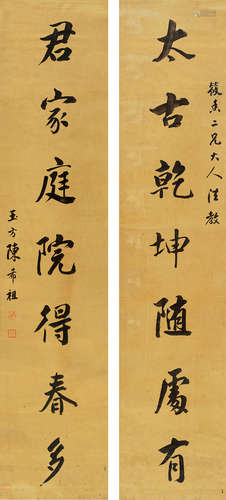 筱香二兄大人法教
太古乾坤随處有
君家庭院得春多
玉方陳希祖